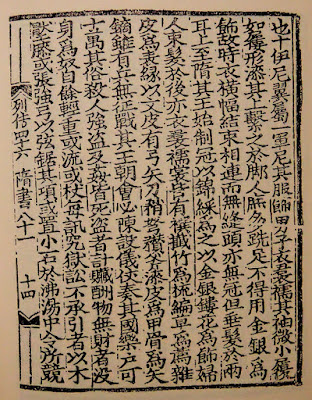 也十伊尼翼屬一軍尼其服飾男子衣裙襦其袖微小履
如屨形漆其上繫之於脚人庶多跣足不得用金銀為
飾故時衣橫幅結束相連而無縫頭亦無冠但垂髮於兩
耳上至隋其王始制冠以錦綵為之以金銀鏤花為飾婦
人束髮於後亦衣裙襦裳皆有襈攕竹為梳編草為薦雜
皮為表緣以文皮有弓矢刀矟弩䂎斧漆皮為甲骨為矢
鏑雖有兵無征戰其王朝會必陳設儀仗奏其國樂戶可
十萬其俗殺人強盜及姦皆死盜者計贓酬物無財者沒
身為奴自餘輕重或流或杖每訊究獄訟不承引者以木
壓膝或張強弓以弦鋸其項或置小石於沸湯中令所競
列傳四十六 隋書八十一 十四